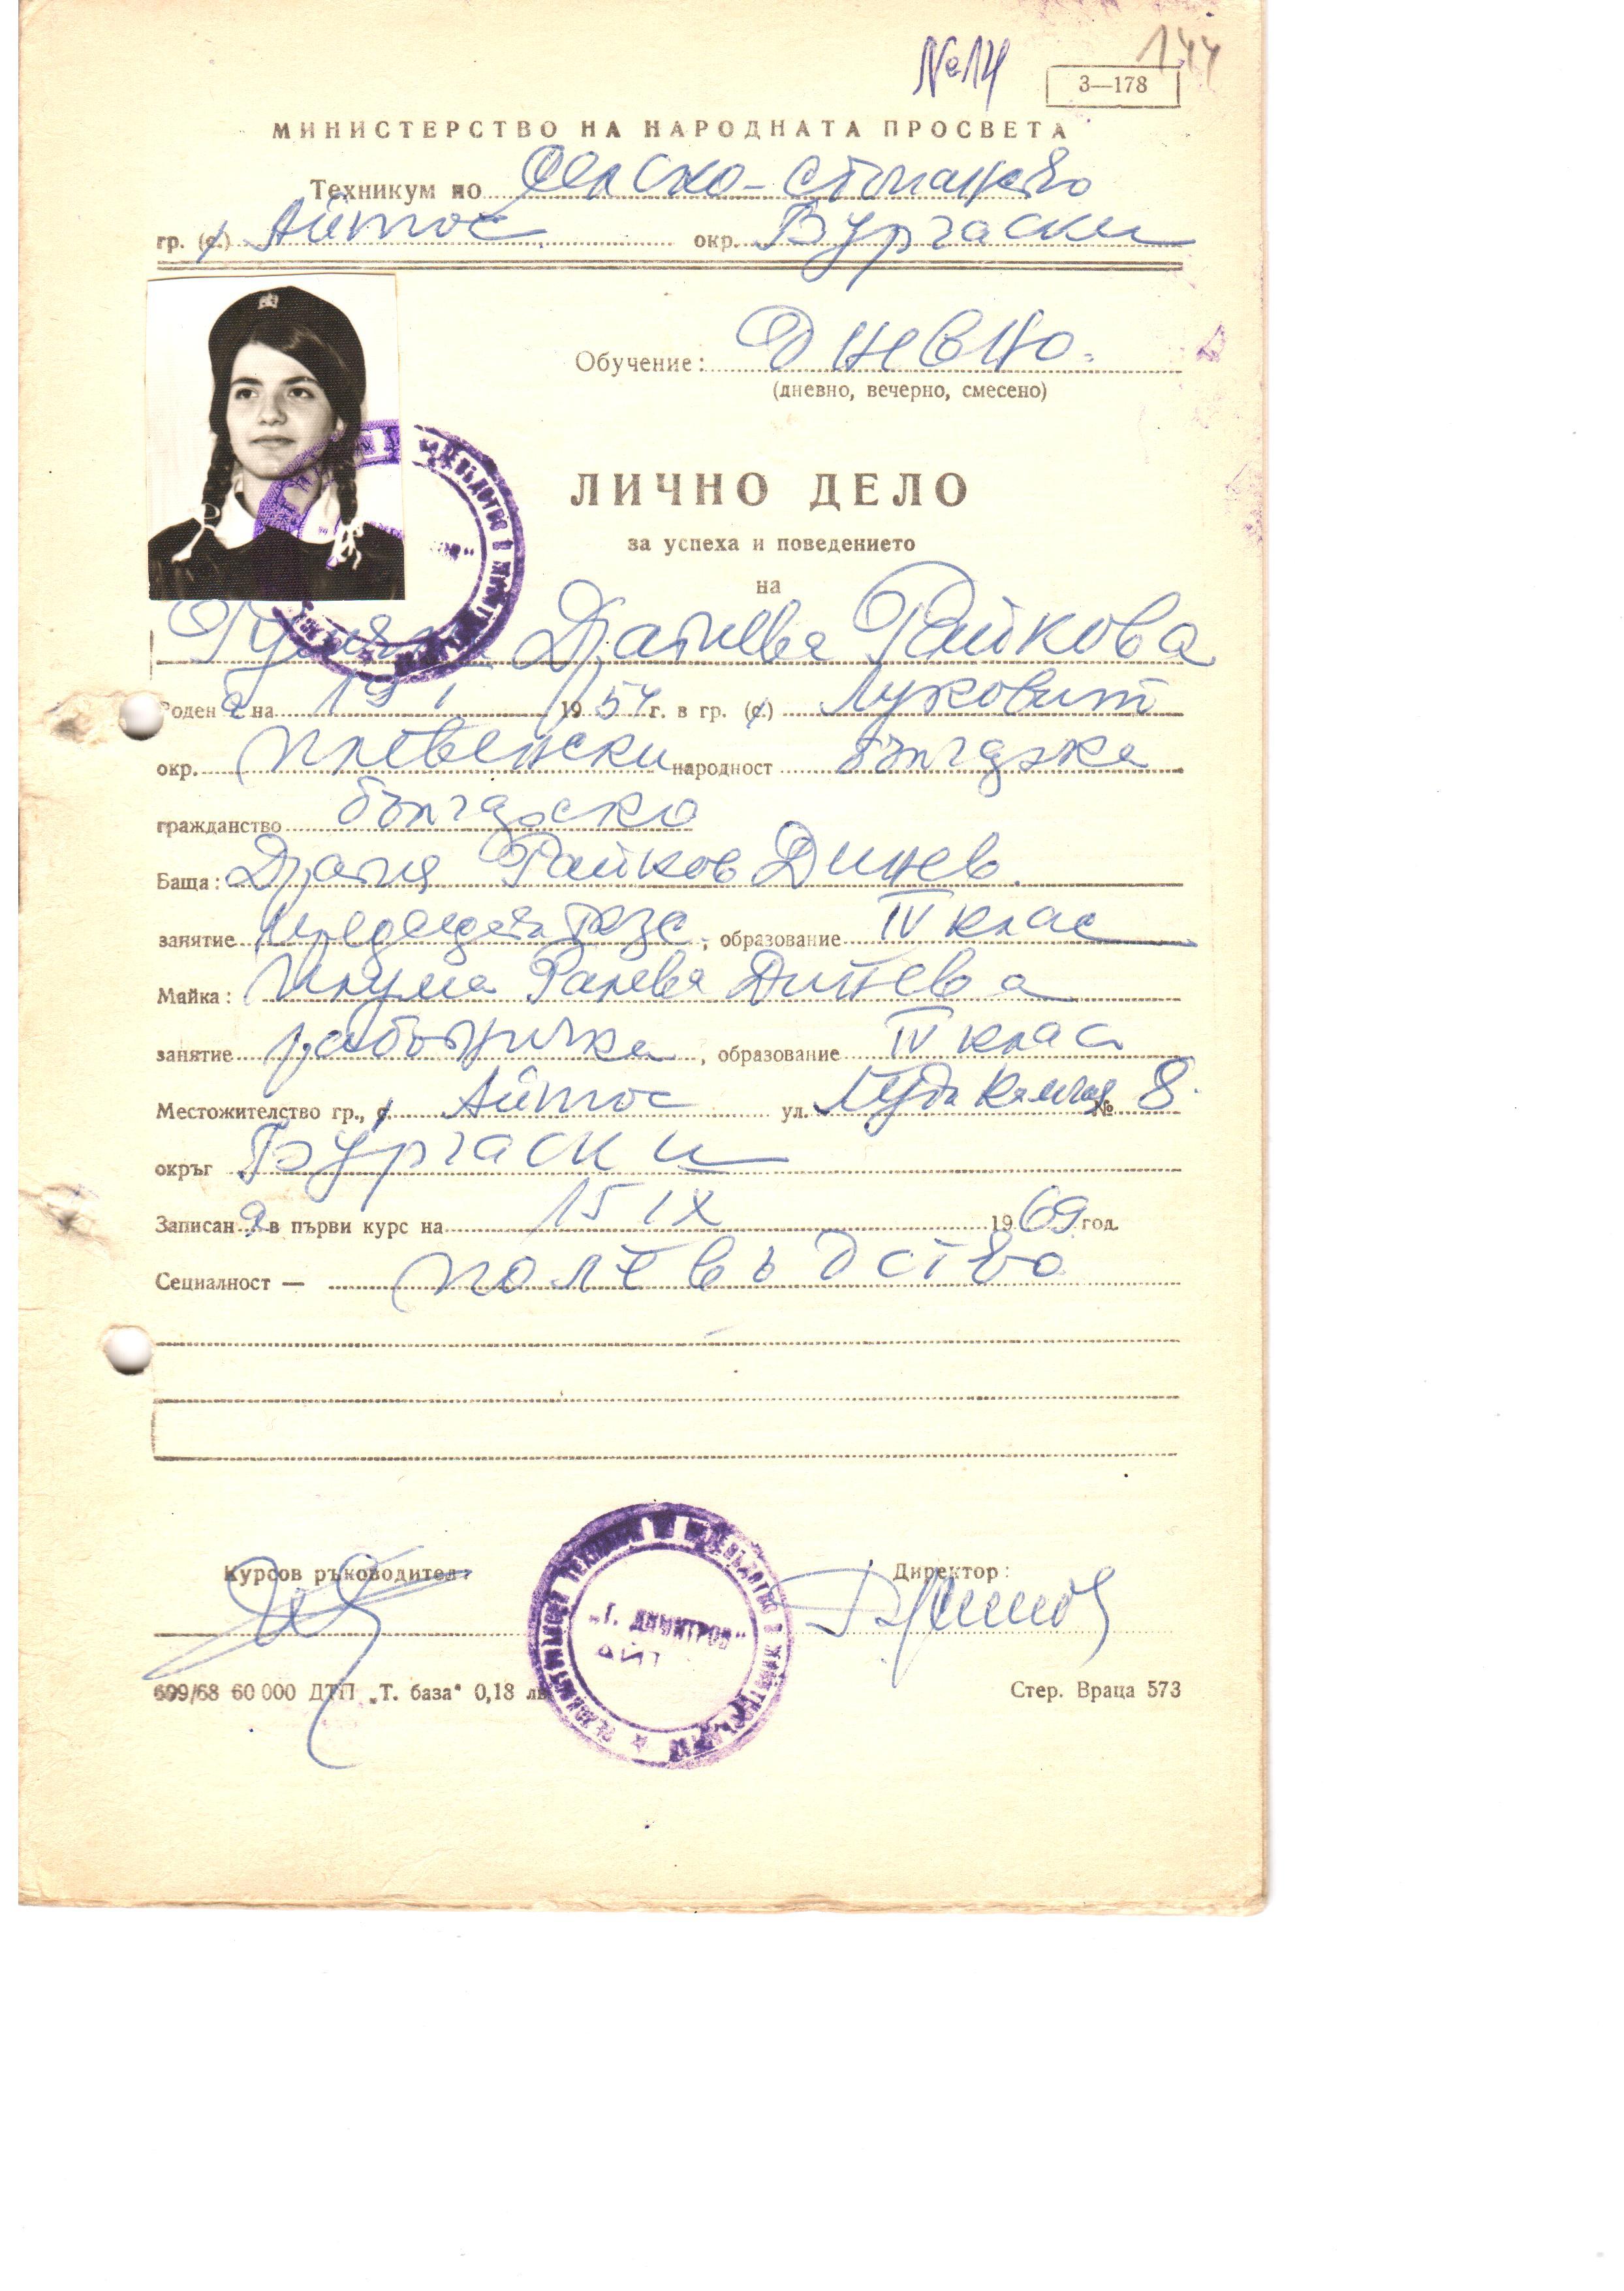 №14
144
3—178
МИНИСТЕРСТВО НА НАРОДНАТА ПРОСВЕТА
Техникум по Селско-стопанство
гр. (с.) Айтос окр. Бургаски
Обучение: Дневно.
(дневно, вечерно, смесено)
ЛИЧНО ДЕЛО
за успеха и поведението
на
Драгиева Райкова
Родена на 19 I 1954 г. в гр. (с.) Луковит
окр. Плевенски народност българка
гражданство българско
Баща: Драгия Райков Динев.
занятие , образование IV клас
Майка: Ралева Динева
занятие работничка, образование IV клас
Местожителство гр., с. Айтос ул. Луда Камчия № 8.
окръг Бургаски
Записана в първи курс на 15 IX 1969 год.
Сециалност — полевъдство
Курсов ръководител:
Директор:
„Г. ДИМИТРОВ"
609/68 60 000 ДТП „Т. база" 0,18 лв
Стер. Враца 573